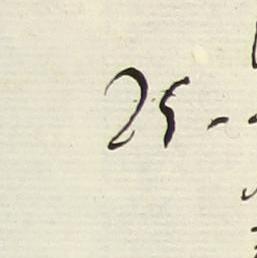 25 -